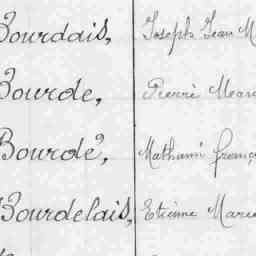 Bourdais, Joseph Jean M
Bourde, Pierre Marc
Bourdé, Mathurin franç
Bourdelais, Etienne Marie